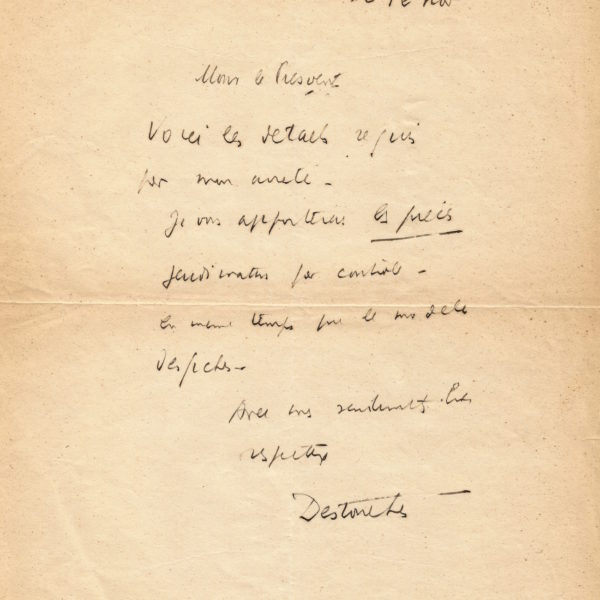 Mons le President
Voici les details requis
par mon arrete -
Je vous apporterai les pièces
Jeudi matin par contrôle -
en meme temps que le modele
des fiches -
Avec mes sentiments très
respectx
Destouches